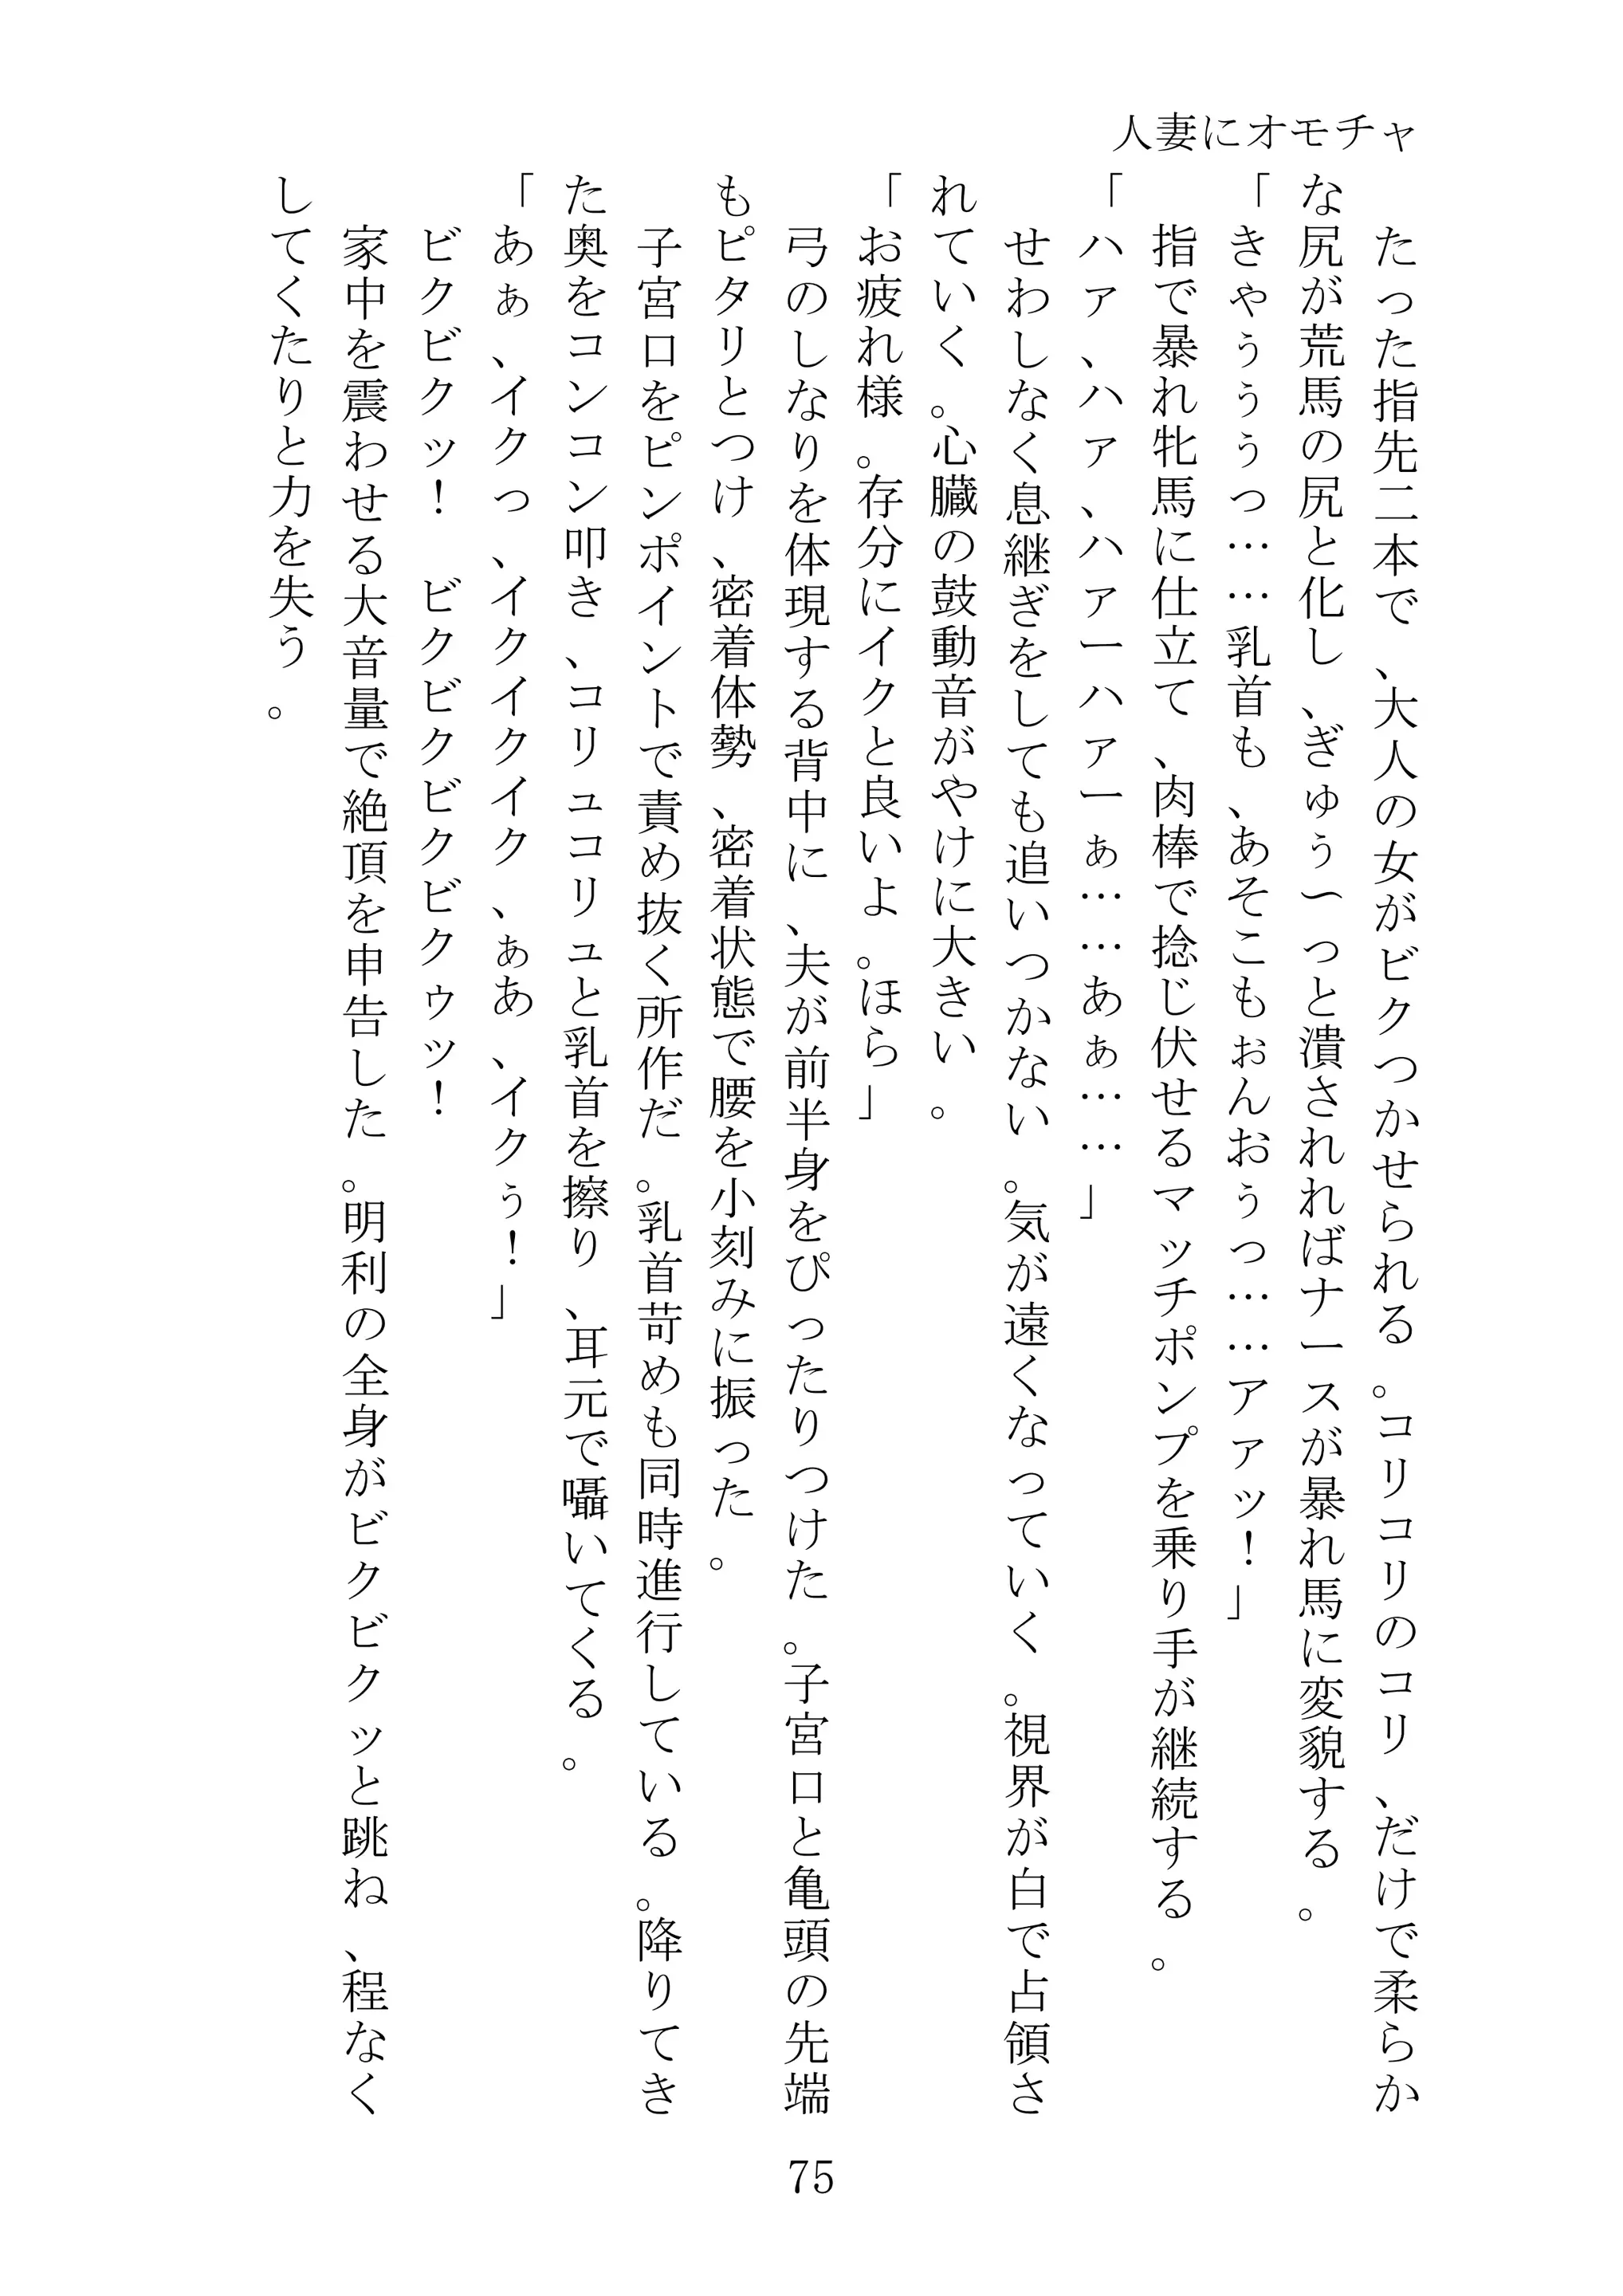 人妻にオモチャ
　たった指先二本で、大人の女がビクつかせられる。コリコリのコリ、だけで柔らか
な尻が荒馬の尻と化し、ぎゅぅ～っと潰されればナースが暴れ馬に変貌する。
「きゃぅぅぅっ……乳首も、あそこもぉんおぅっ……アァッ！」
　指で暴れ牝馬に仕立て、肉棒で捻じ伏せるマッチポンプを乗り手が継続する。
「ハァ、ハァ、ハァーハァーぁ……あぁ……」
　せわしなく息継ぎをしても追いつかない。気が遠くなっていく。視界が白で占領さ
れていく。心臓の鼓動音がやけに大きい。
「お疲れ様。存分にイクと良いよ。ほら」
　弓のしなりを体現する背中に、夫が前半身をぴったりつけた。子宮口と亀頭の先端
もピタリとつけ、密着体勢、密着状態で腰を小刻みに振った。
　子宮口をピンポイントで責め抜く所作だ。乳首苛めも同時進行している。降りてき
た奥をコンコン叩き、コリュコリュと乳首を擦り、耳元で囁いてくる。
「あぁ、イクっ、イクイクイク、ぁあ、イクぅ！」
　ビクビクッ！　ビクビクビクビクゥッ！
　家中を震わせる大音量で絶頂を申告した。明利の全身がビクビクッと跳ね、程なく
してくたりと力を失う。
75